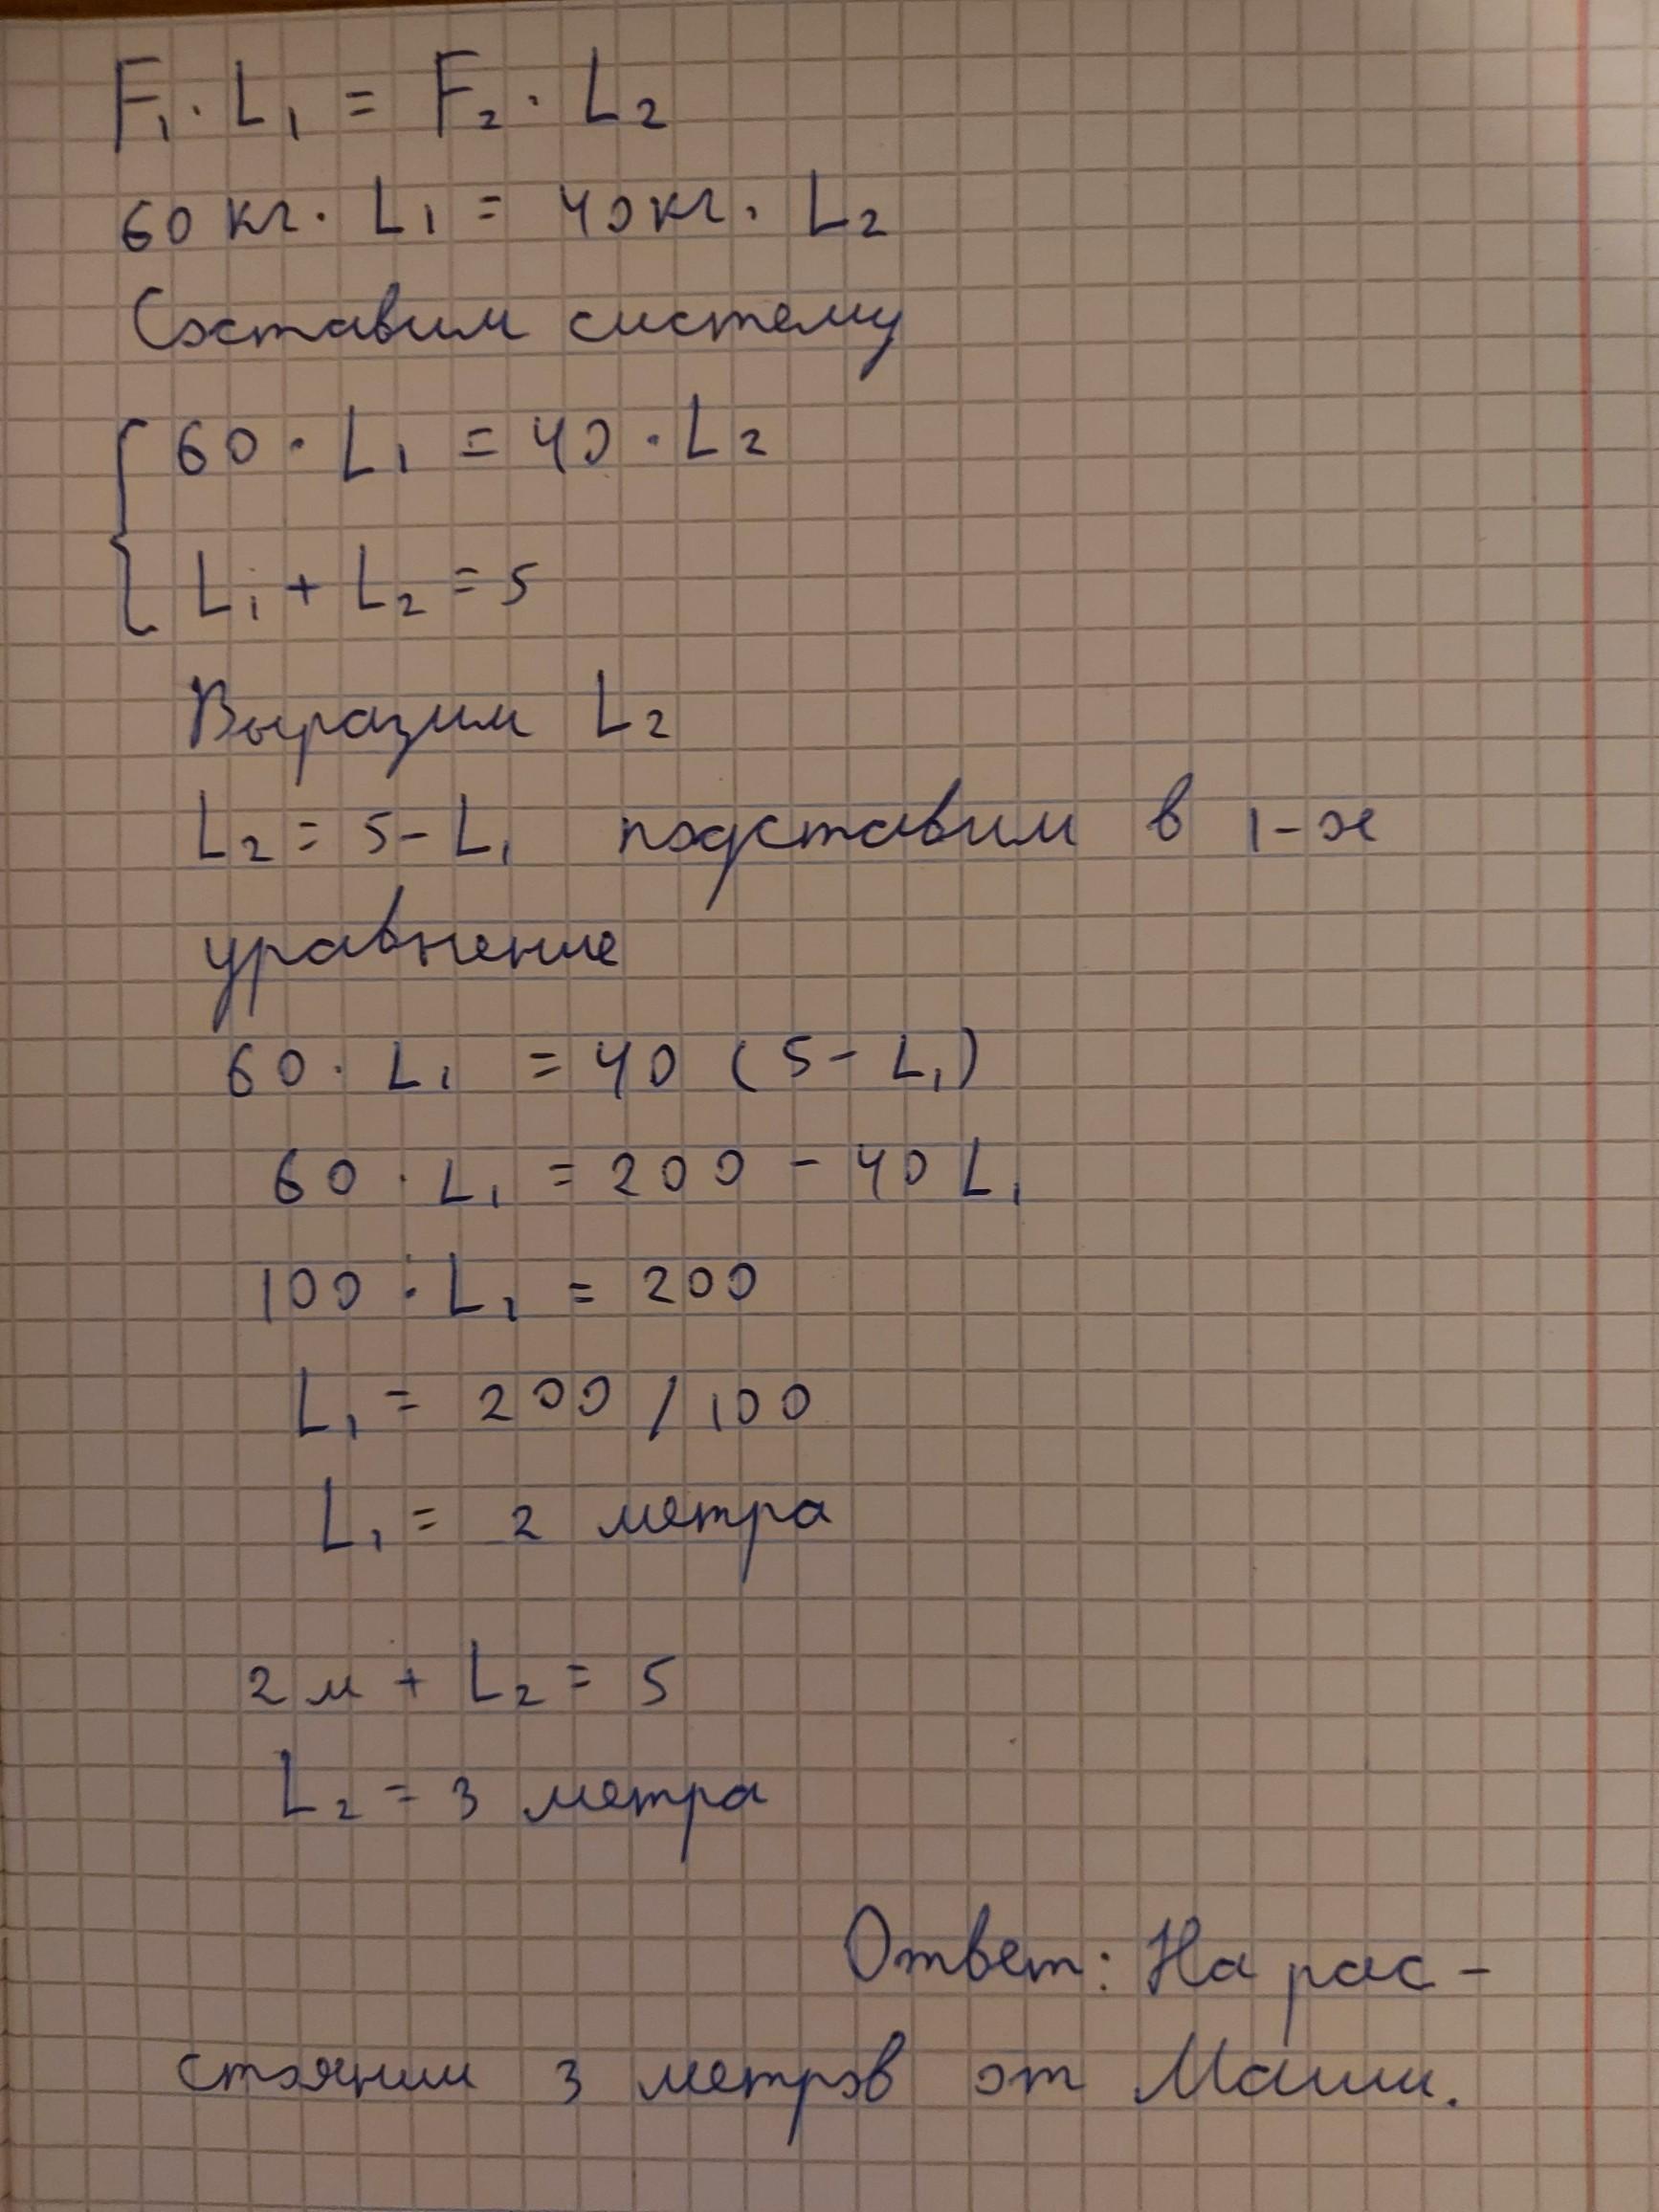 F₁ · L₁ = F₂ · L₂
60 кг · L₁ = 40 кг · L₂
Составим систему
60 · L₁ = 40 · L₂
L₁ + L₂ = 5
Выразим L₂
L₂ = 5 - L₁ подставим в 1-ое
уравнение
60 · L₁ = 40 (5 - L₁)
60 · L₁ = 200 - 40 L₁
100 · L₁ = 200
L₁ = 200 / 100
L₁ = 2 метра
2 м + L₂ = 5
L₂ = 3 метра
Ответ: На рас-
стоянии 3 метров от Маши.